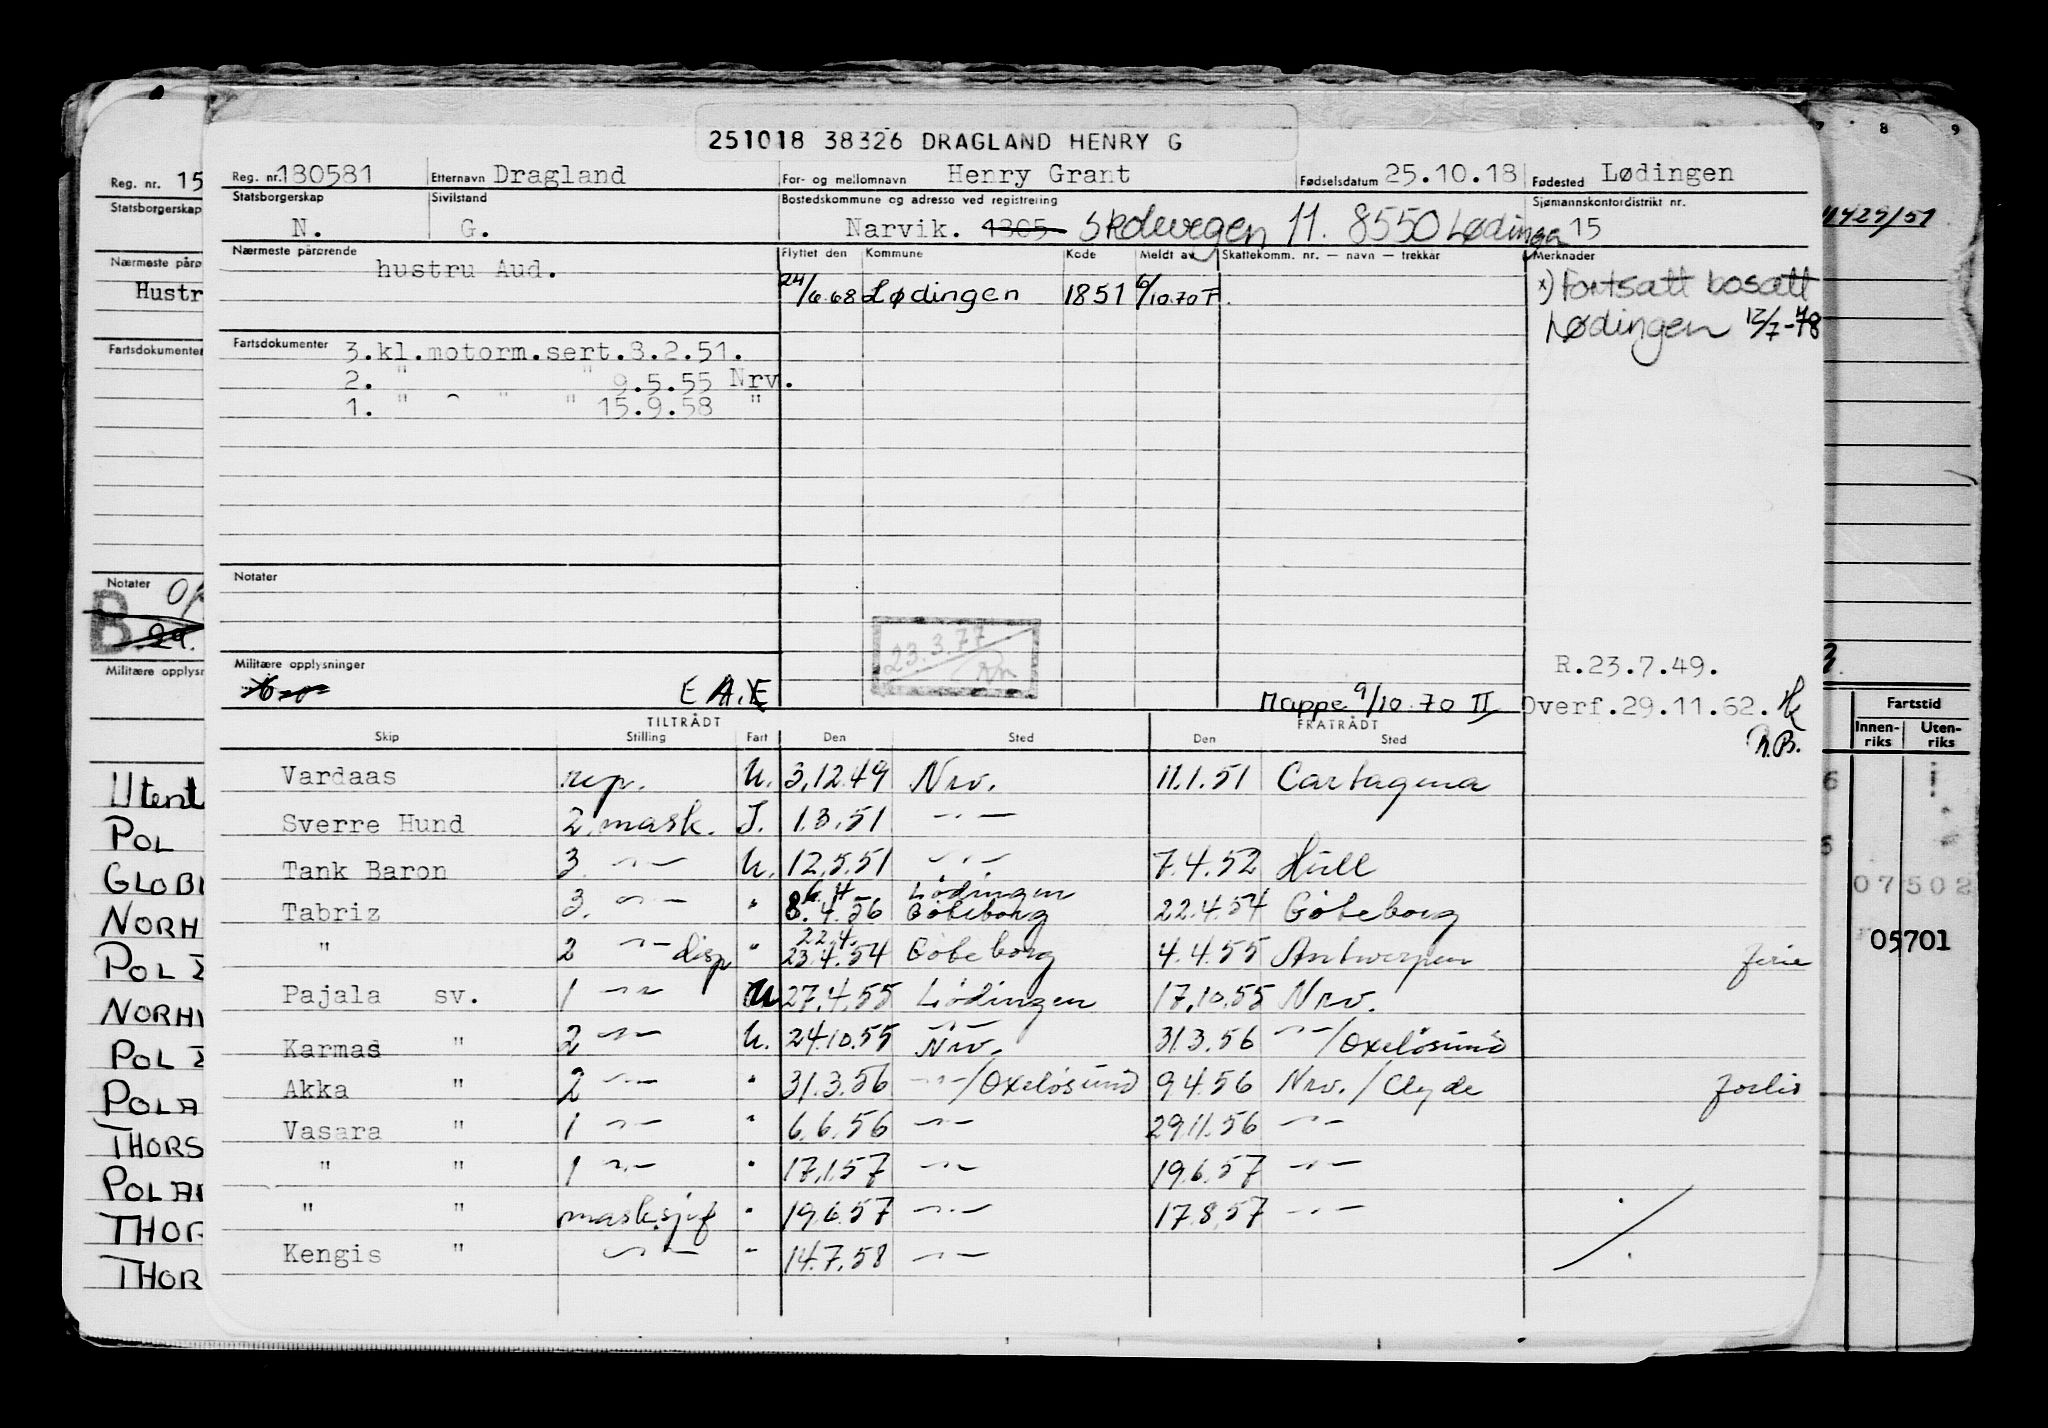 251018 38326 DRAGLAND HENRY G
Reg. nr. 180581 Etternavn Dragland For- og mellomnavn Henry Grant Fødselsdatum 25.10.18 Fødested Lødingen
Statsborgerskap Sivilstand Bostedskommune og adresse ved registrering Sjømannskontordistrikt nr.
N. G. Narvik. 1805 Skolevegen 11. 8550 Lødingen 15
Nærmeste pårørende Flyttet den Kommune Kode Meldt av Skattekomm. nr. — navn — trekkår Merknader
hustru Aud.
24/6.68 Lødingen 1851 6/10.70 F.
x) Fortsatt bosatt
Lødingen 12/7-78
Fartsdokumenter 3.kl.motorm.sert.3.2.51.
2. " " 9.5.55 Nrv.
1. " " " 15.9.58 "
Notater
23.3.77
Militære opplysninger
R.23.7.49.
E A.E Mappe 9/10.70 II Overf.29.11.62.
TILTRÅDT FRATRÅDT
Skip Stilling Fart Den Sted Den Sted
Vardaas rep. U. 3.12.49 Nrv. 11.1.51 Cartagena
Sverre Hund 2. mask. I. 1.3.51 —"—
Tank Baron 3. —"— U. 12.5.51 —"— 7.4.52 Hull
6.4 Lødingen
Tabriz 3. —"— " 8.4.56 Gøteborg 22.4.54 Gøteborg
22.4.
" 2 —"— disp " 23.4.54 Gøteborg 4.4.55 Antwerpen ferie
Pajala sv. 1 —"— U 27.4.55 Lødingen 17.10.55 Nrv.
Karmas " 2 —"— U. 24.10.55 Nrv. 31.3.56 —"—/Oxeløsund
Akka " 2 —"— " 31.3.56 —"—/Oxeløsund 9.4.56 Nrv./Clyde forlis
Vasara " 1 —"— " 6.6.56 —"— 29.11.56 —"—
" " 1 —"— " 17.1.57 —"— 19.6.57 —"—
" " mask.sjef " 19.6.57 —"— 17.8.57 —"—
Kengis " —"— " 14.7.58 —"—
Reg. nr. 15
Statsborgerskap
Nærmeste pårø
Hustr
Fartsdokumenter
Notater
B
29.
Militære opplys
Utent
POL
GLOB
NORH
POL
NORH
POL
POLA
THORS
POLA
THOR
THOR
8 9
Fartstid
Innen-riks Uten-riks
07502
05701